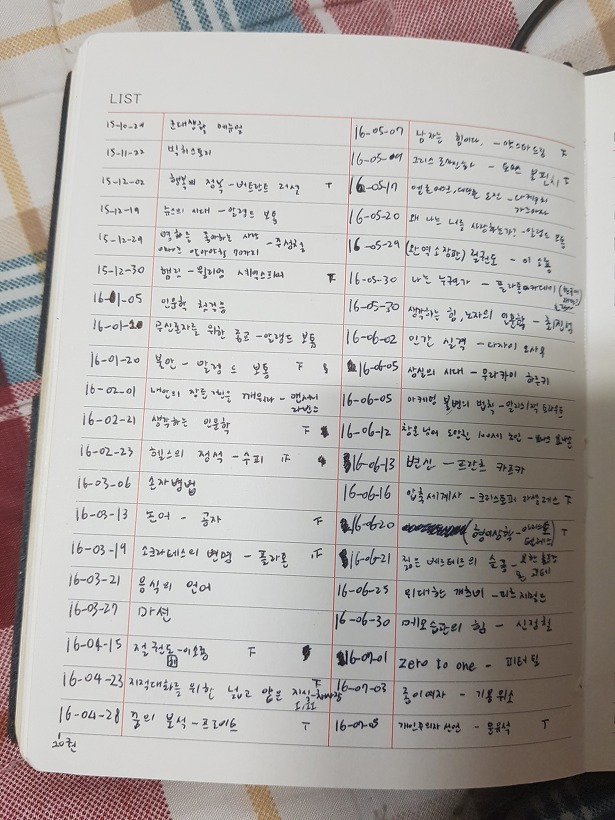 LIST
15-10-29 군대생활 매뉴얼
15-11-22 빅히스토리
15-12-02 행복의 정복 - 버트란트 러셀 T
15-12-19 뉴스의 시대 - 알랭드 보통
15-12-29 역학을 좋아하는 사람 - 주성철
알아야할 70가지
15-12-30 햄릿 - 윌리엄 셰익스피어 F
16-01-05 인문학
16-01-10 무신론자를 위한 종교 - 알랭드 보통
16-01-20 불안 - 알랭 드 보통 F
16-02-01 내안의 잠든 깨워라 - 앤서니
라빈스
16-02-21 생각하는 인문학 F
16-02-23 헬스의 정석 - 수피 F
16-03-06 손자병법
16-03-13 논어 - 공자 F
16-03-19 소크라테스의 변명 - 플라톤 F
16-03-21 음식의 언어
16-03-27 마션
16-04-15 절권도 - 이소룡 F
16-04-23 지적대화를 위한 넓고 얕은 지식 - 채사장 F
16-04-28 꿈의 분석 - 프로이트 T
20권
16-05-07 남자는 힘이다. - 맛스타드림 F
16-05-09 그리스 로마신화 - 토마스 불핀치 F
16-05-17 - 다케우치
16-05-20 왜 나는 너를 사랑하는가? - 알랭드 보통
16-05-29 (완역소장판) 절권도 - 이소룡
16-05-30 나는 누구인가 - 플라톤아카데미
16-05-30 생각하는 힘, 노자의 인문학 - 최진석
16-06-02 인간 실격 - 다자이 오사무
16-06-05 상실의 시대 - 무라카미 하루키
16-06-05 마케팅 불변의 법칙 - 알리스/잭 트라우트
16-06-12 창문 넘어 도망친 100세 노인 - 요나스 요나손
16-06-13 변신 - 프란츠 카프카
16-06-16 압축세계사 - 크리스토퍼 라셀레스 F
16-06-20 (형이상학 - 아리스토
텔레스) T
16-06-21 젊은 베르테르의 슬픔 - 요한 볼프강
폰 괴테
16-06-25 위대한 개츠비 - 피츠제럴드
16-06-30 메모습관의 힘 - 신정철
16-07-01 Zero to one - 피터 틸
16-07-03 종이여자 - 기욤뮈소
16-07-08 개인주의자 선언 - 문유석 T